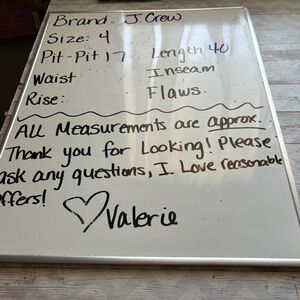 Brand- J. Crew
Size: 4
Pit-Pit 17 Length 40
Waist Inseam
Rise: Flaws
All Measurements are approx.
Thank you for Looking! Please
ask any questions, I Love reasonable
offers!
Valerie